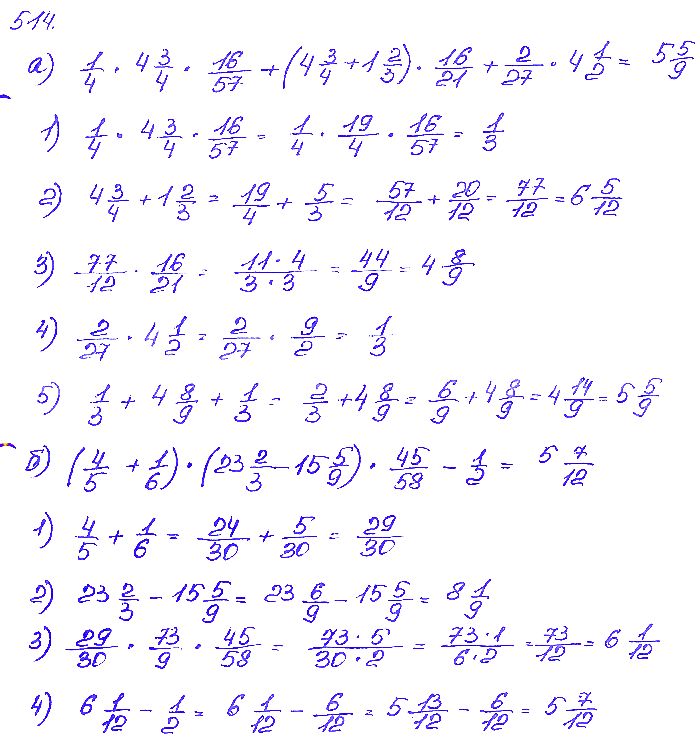 514.
а) 1/4 · 4 3/4 · 16/57 + (4 3/4 + 1 2/3) · 16/21 + 2/27 · 4 1/2 = 5 5/9
1) 1/4 · 4 3/4 · 16/57 = 1/4 · 19/4 · 16/57 = 1/3
2) 4 3/4 + 1 2/3 = 19/4 + 5/3 = 57/12 + 20/12 = 77/12 = 6 5/12
3) 77/12 · 16/21 = 11·4/3·3 = 44/9 = 4 8/9
4) 2/27 · 4 1/2 = 2/27 · 9/2 = 1/3
5) 1/3 + 4 8/9 + 1/3 = 2/3 + 4 8/9 = 6/9 + 4 8/9 = 4 14/9 = 5 5/9
б) (4/5 + 1/6) · (23 2/3 - 15 5/9) · 45/58 - 1/2 = 5 7/12
1) 4/5 + 1/6 = 24/30 + 5/30 = 29/30
2) 23 2/3 - 15 5/9 = 23 6/9 - 15 5/9 = 8 1/9
3) 29/30 · 73/9 · 45/58 = 73·5/30·2 = 73·1/6·2 = 73/12 = 6 1/12
4) 6 1/12 - 1/2 = 6 1/12 - 6/12 = 5 13/12 - 6/12 = 5 7/12